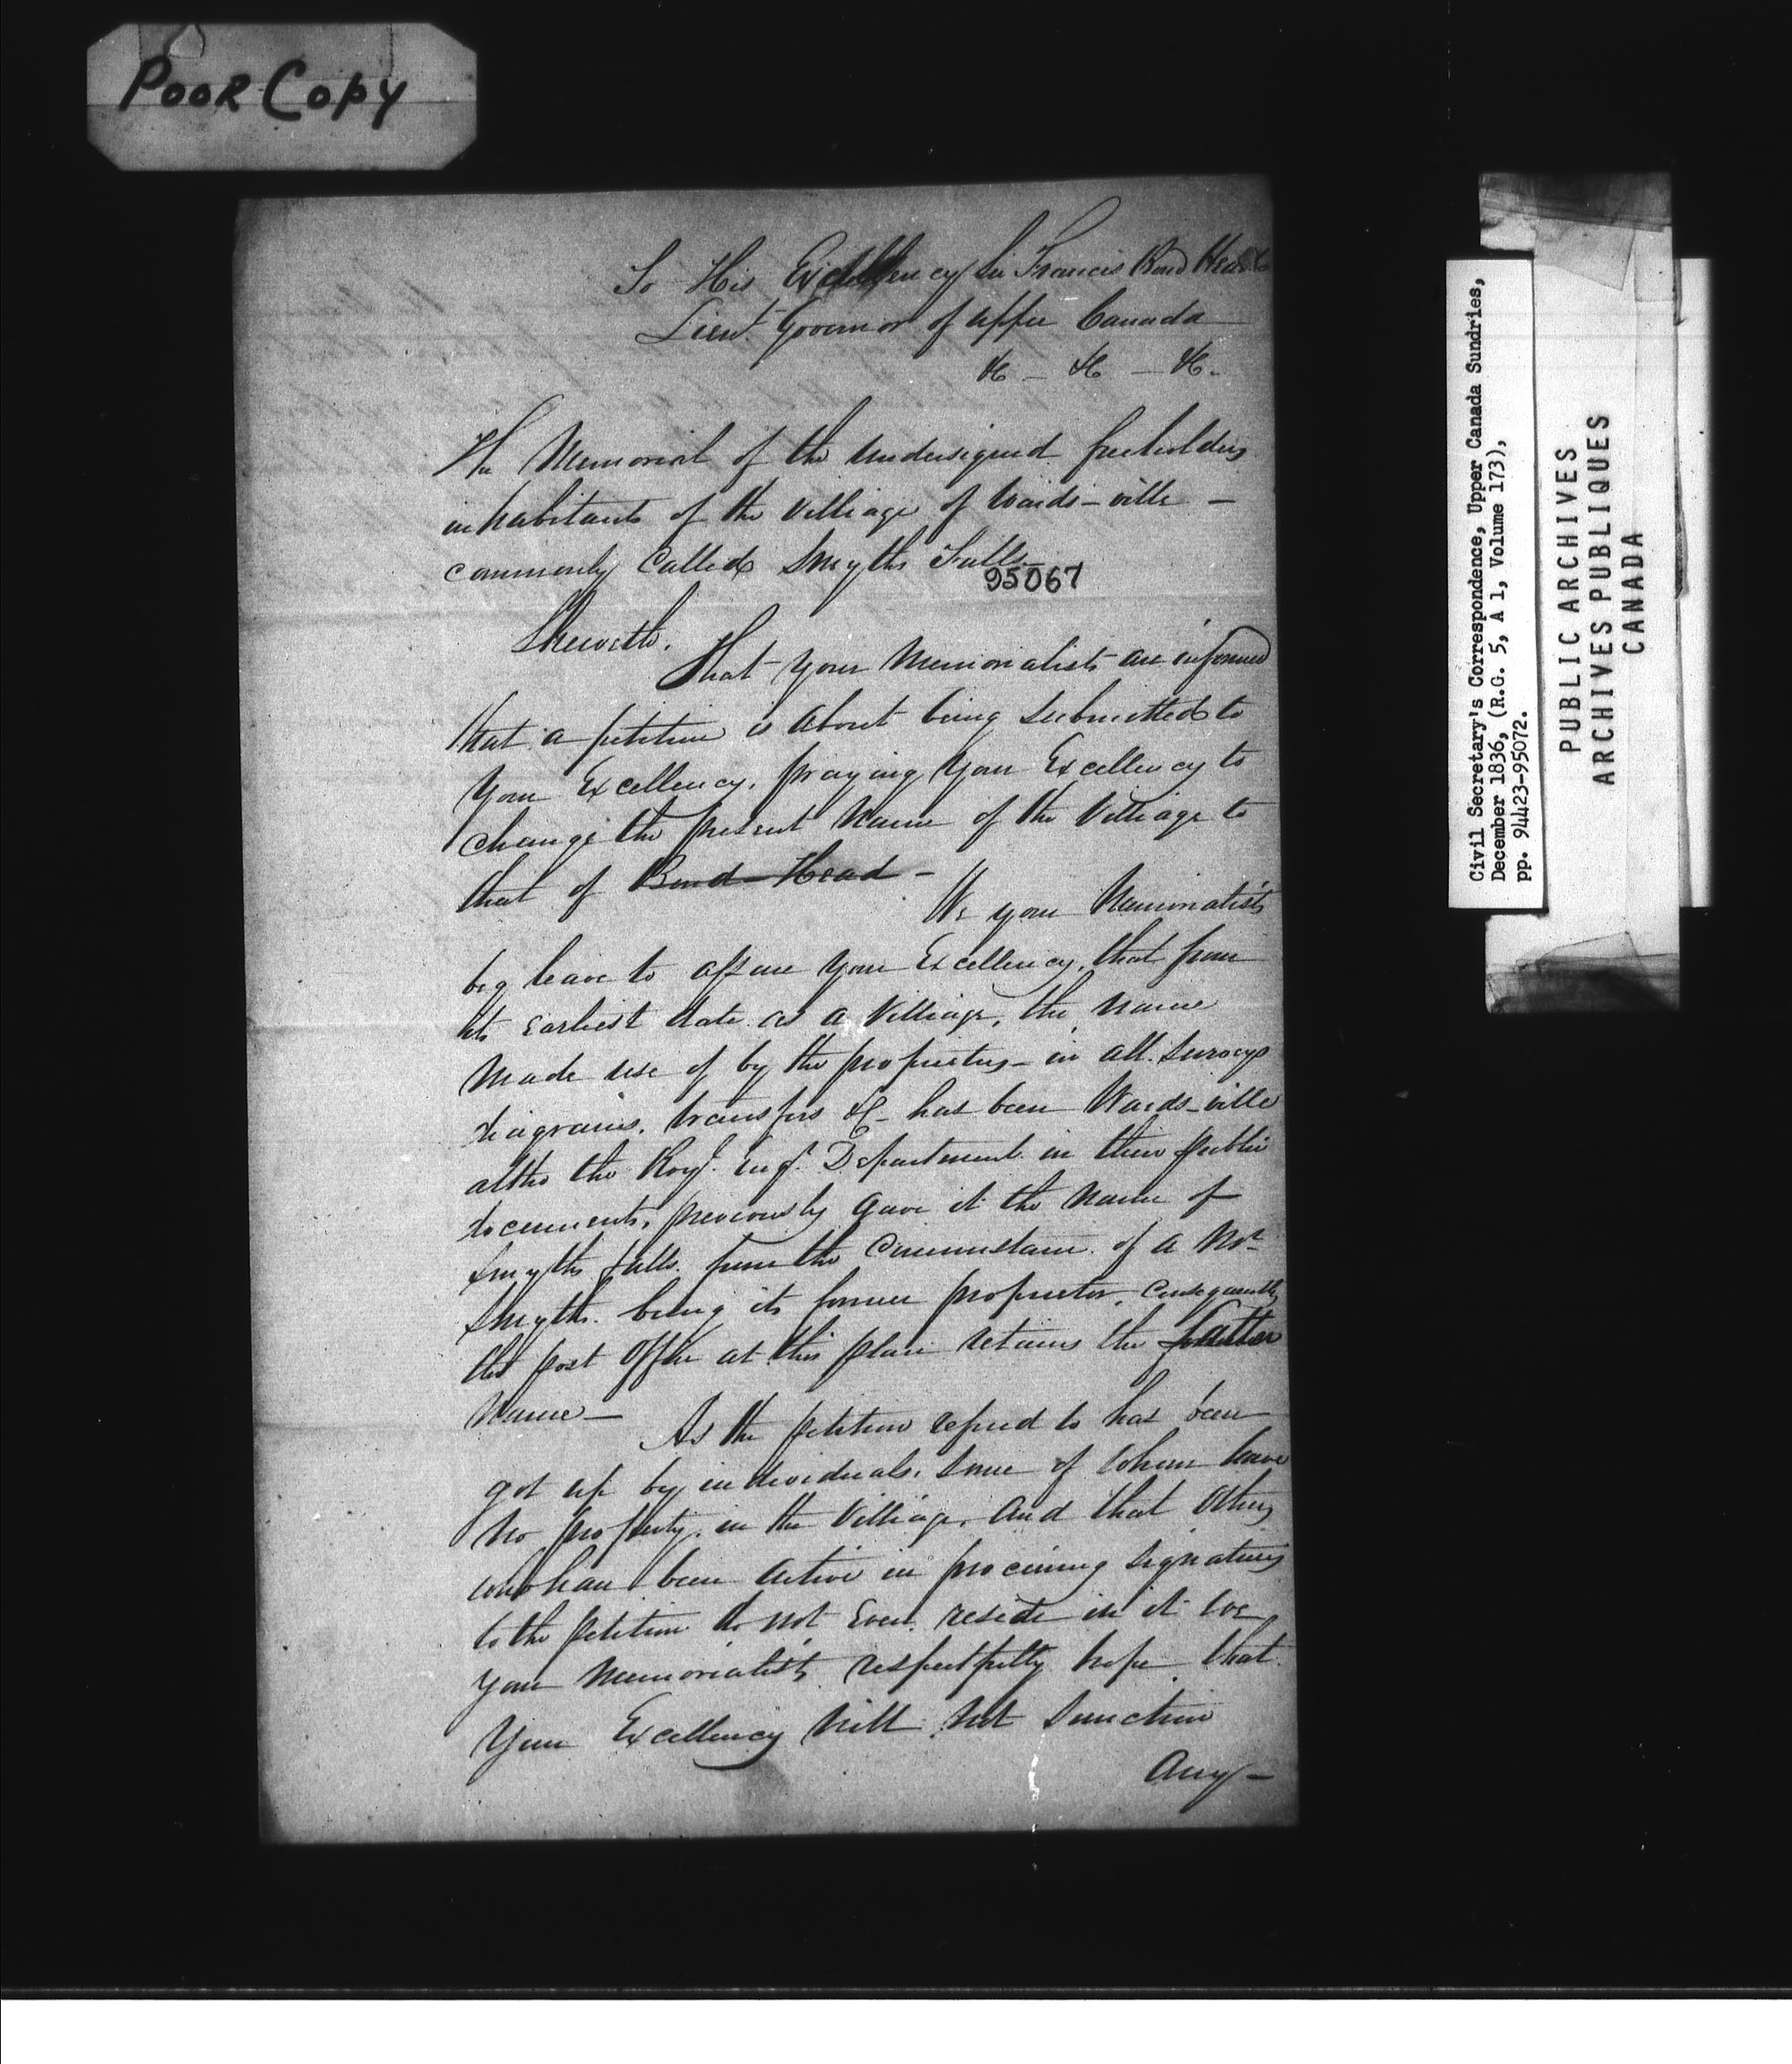 Poor Copy
To His Excellency Sir Francis Bond Head
Lieut. Governor of Upper Canada
&c - &c - &c.
The Memorial of the undersigned freeholders
inhabitants of the Villiage of Wards-ville -
commonly Called Smyths Falls
95067
Sheweth.
That your Memorialists are informed
that a petition is about being submitted to
Your Excellency, praying Your Excellency to
change the present Name of the Villiage to
that of Bond-Head -
We your Memorialists
beg leave to assure Your Excellency, that from
its earliest date as a Villiage, the name
Made use of by the proprietors - in all Surveys
diagrams, transfers &c - has been Wards-ville
altho the Royl. Engr. Department in their public
documents, previously gave it the Name of
Smyths falls from the Circumstance of a Mr
Smyth being its former proprietor, Consequently
the post Office at this place retains the latter
Name -
As the petition refered to has been
got up by individuals, some of whom have
No property in the Villiage, And that others
who have been Active in procuring signatures
to the petition do not Even reside in it we
your Memorialists respectfully hope that
Your Excellency will not sanction
Any -
Civil Secretary's Correspondence, Upper Canada Sundries,
December 1836, (R.G. 5, A 1, Volume 173),
pp. 94423-95072.
PUBLIC ARCHIVES
ARCHIVES PUBLIQUES
CANADA